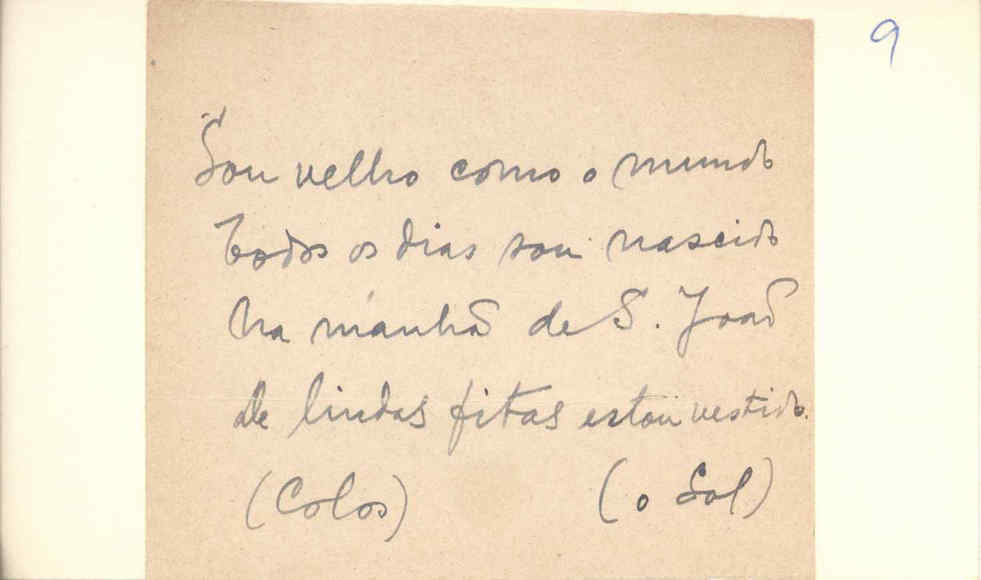 9
Sou velho como o mundo
Todos os dias sou nascido
Na manhã de S. João
De lindas fitas estou vestido.
(Colos) (o Sol)